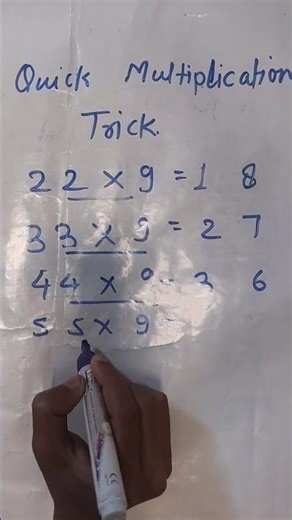 Quick Multiplication
Trick.
22 x 9 = 1 8
33 x 9 = 2 7
44 x 9 = 3 6
55 x 9 =